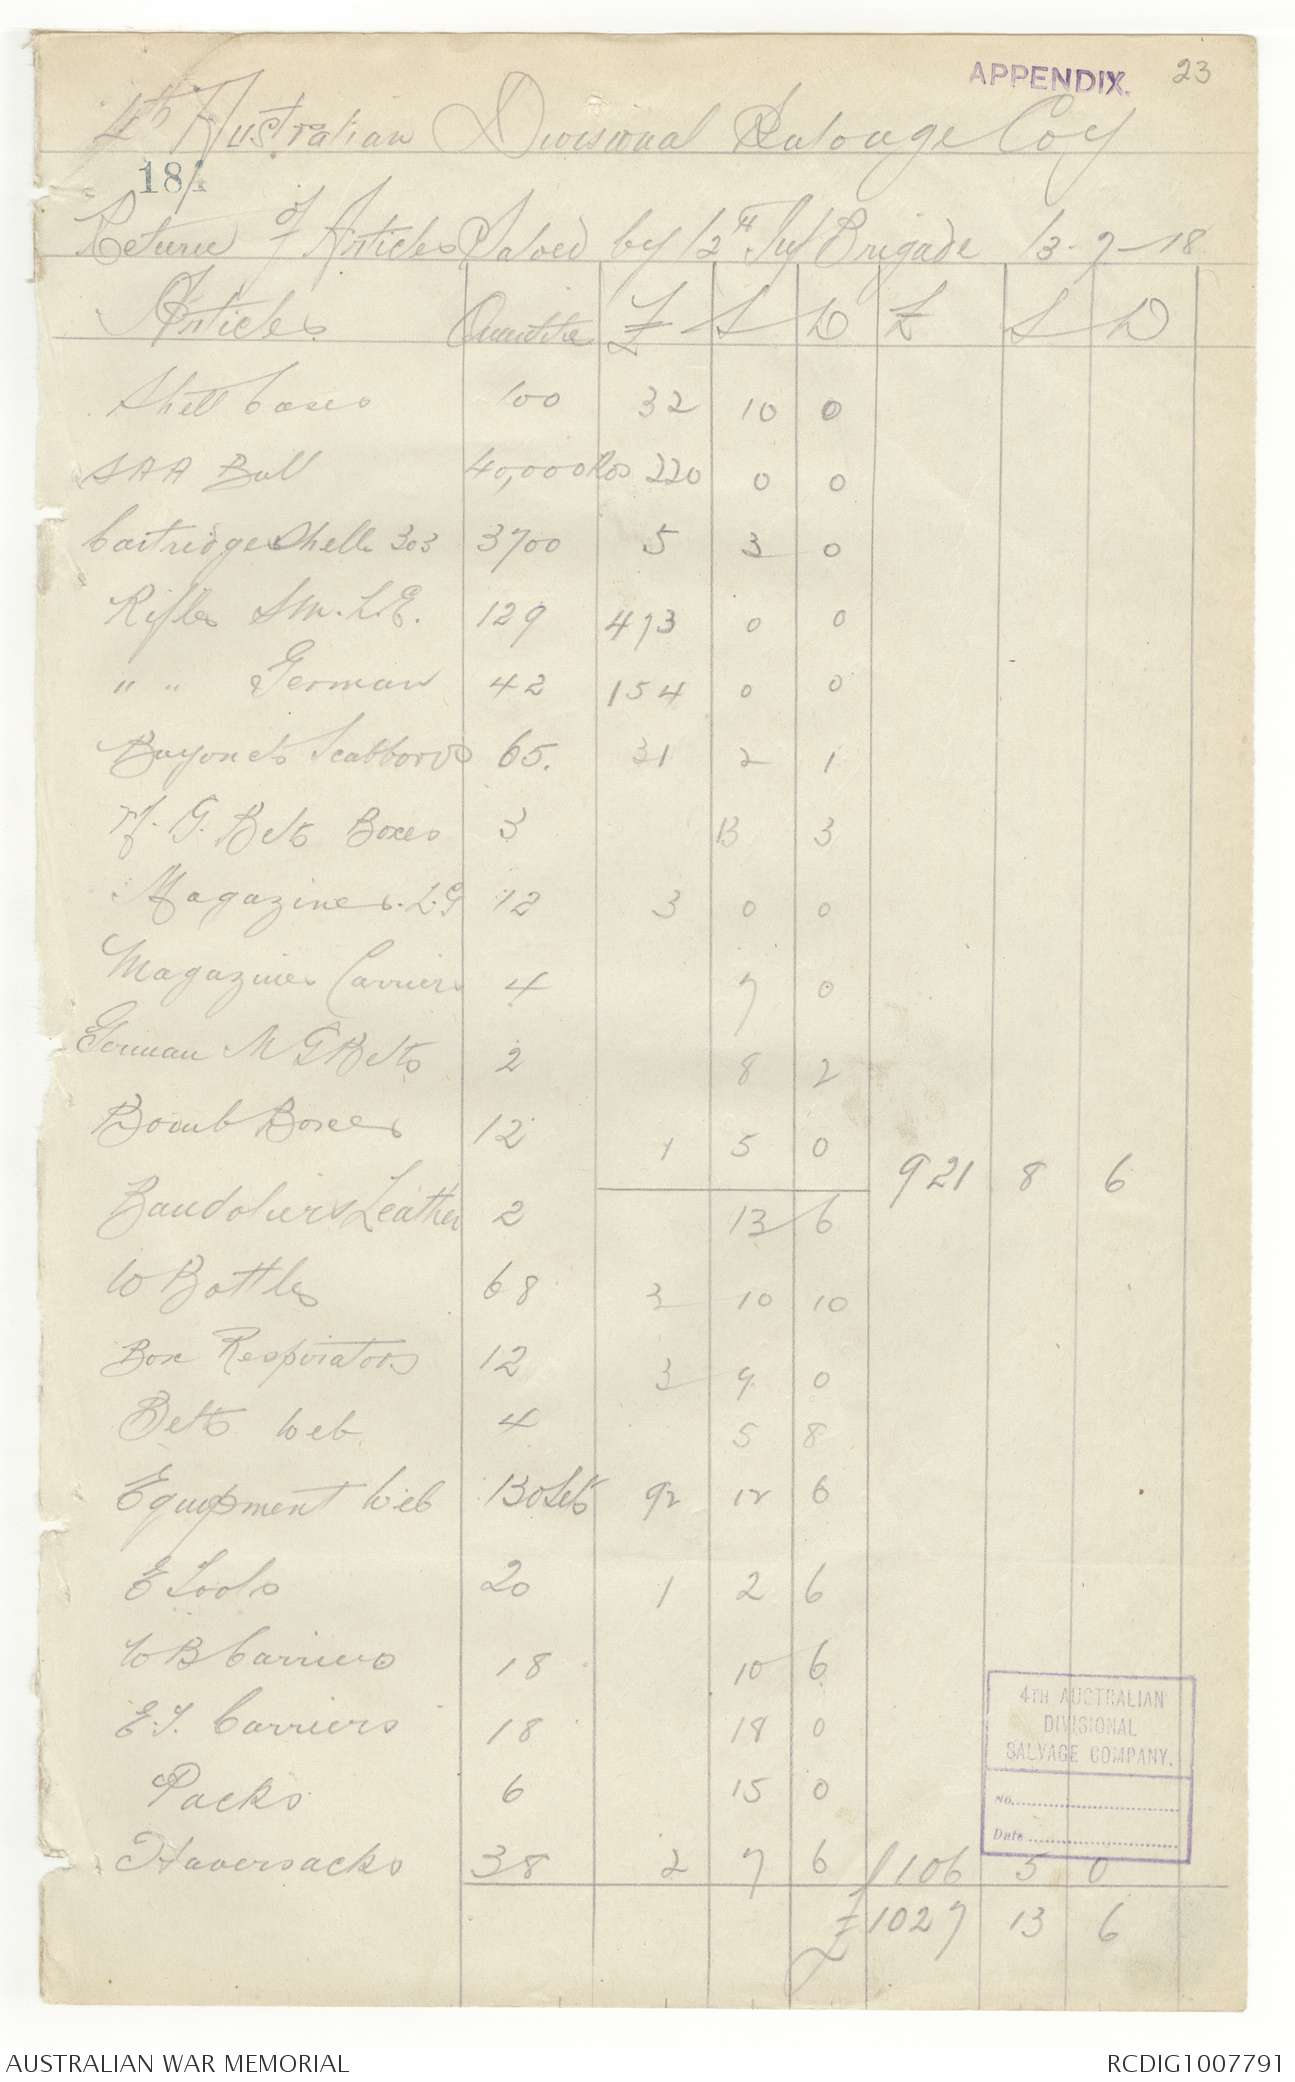 APPENDIX. 23
4th Australian Divisional Salvage Coy
184
Return of Articles Salved by 12th Inf Brigade 13-7-18
Articles Quantitie £ S D £ S D
Shell Cases 100 32 10 0
SAA Ball 40,000 Rds 220 0 0
Cartridges Shells 303 3700 5 3 0
Rifles S.M.L.E. 129 473 0 0
" " German 42 154 0 0
Bayonets Scabbords 65. 31 2 1
M.G. Belts Boxes 3 13 3
Magazines. L.G 12 3 0 0
Magazines Carriers 4 7 0
German M G Belts 2 8 2
Bomb Boxes 12 1 5 0
921 8 6
Bandoliers Leather 2 13 6
W Bottles 68 3 10 10
Box Respirators 12 3 9 0
Belts Web 4 5 8
Equipment Web 130 Sets 92 12 6
E Tools 20 1 2 6
W B Carriers 18 10 6
E.T. Carriers 18 18 0
Packs 6 15 0
Haversacks 38 2 7 6 106 5 0
£ 1027 13 6
4TH AUSTRALIAN
DIVISIONAL
SALVAGE COMPANY.
No.
Date
AUSTRALIAN WAR MEMORIAL RCDIG1007791